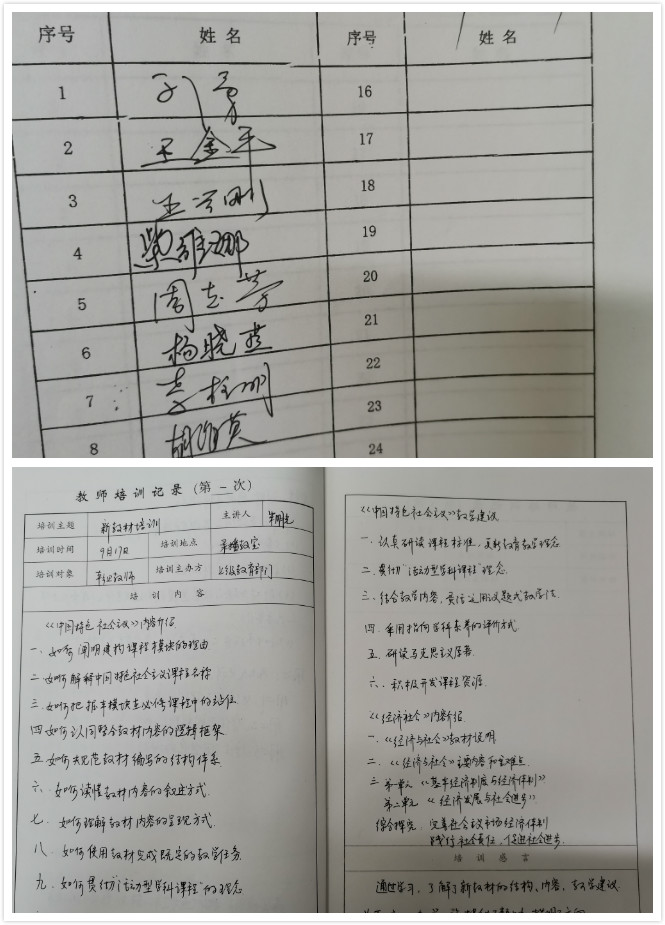 序号 姓名 序号 姓名
1 16
2 王金平 17
3 18
4 柴维娜 19
5 周志芳 20
6 杨晓燕 21
7 李桂明 22
8 23
24
教师培训记录(第一次)
培训主题 新教材培训 主讲人
培训时间 9月17日 培训地点 录播教室
培训对象 政治教师 培训主办方 上级教育部门
培训内容
《中国特色社会主义》内容介绍
一、如何阐明建构课程模块的理由
二、如何解释中国特色社会主义课程名称
三、如何把握本模块在必修课程中的站位
四、如何认同整合教材内容的逻辑框架
五、如何规范教材编写的结构体系
六、如何读懂教材内容的叙述方式
七、如何理解教材内容的呈现方式
八、如何使用教材完成既定的教学任务
九、如何贯彻“活动型学科课程”的理念
《中国特色社会主义》教学建议
一、认真研读课程标准,更新教育教学理念
二、贯彻“活动型学科课程”理念
三、结合教学内容,灵活运用议题式教学法
四、采用指向学科素养的评价方式
五、研读马克思主义原著
六、积极开发课程资源
《经济社会》内容介绍
一、《经济与社会》教材说明
二、《经济与社会》主要内容和重难点
三、第一单元《基本经济制度与经济体制》
第二单元《经济发展与社会进步》
综合探究:完善社会主义市场经济体制
践行社会责任,促进社会进步
培训感言
通过学习,了解了新教材的结构、内容,教学建议